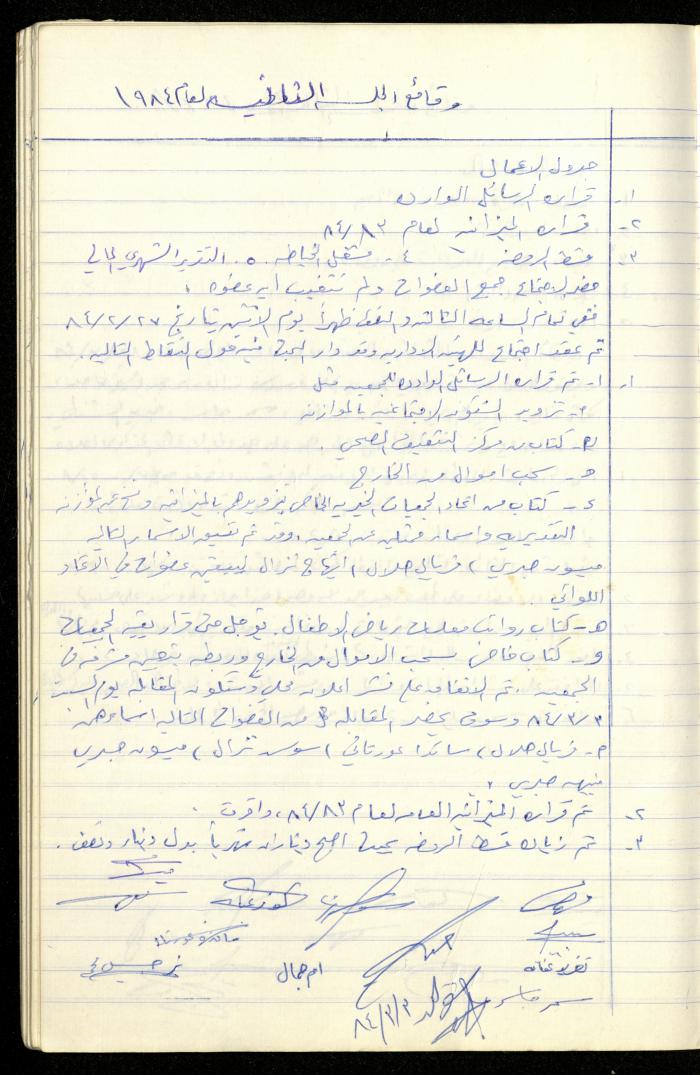 وقائع الجلسه الثانيه لعام ١٩٨٤
جدول الاعمال
١- قراءه الرسائل الوارده
٢- قراءه الميزانيه لعام ٨٤/٨٣
٣- قسط الروضه ٤- مشغل الخياطه ٥. التقرير الشهري المالي
حضر الاجتماع جميع العضوات ولم تتغيب ايه عضوه .
ففي تمام الساعه الثالثه والنصف ظهراً يوم الاثنين بتاريخ ٨٤/٢/٢٧
تم عقد اجتماع للهيئه الاداريه وقد دار البحث فيه حول النقاط التاليه .
١- ا- تم قراءه الرسائل الوارده للجمعيه مثل
تزويد الشؤون الاجتماعيه بالموازنه
كتاب من مركز التثقيف الصحي .
سحب اموال من الخارج
كتاب من اتحاد الجمعيات الخيريه الخاص بتزويدهم بالميزانيه ونسخ عن الموازنه
التقديريه واسماء ممثلين عن الجمعيه ، وقد تم تنسيق الاسماء التاليه
ميسون صبري ، فريال هلال ، ابتهاج نزال ليبقين عضوات في الاتحاد
اللوائي
هـ- كتاب رواتب معلمات رياض الاطفال. يؤجل حتى قرار بقيه الجمعيات
و- كتاب خاص بسحب الاموال من الخارج وربطه بتعيين مشرفه في
الجمعيه . تم الاتفاق على نشر اعلان محلي وستكون المقابله يوم السبت
٨٤/٣/٣ وسوف يحضر المقابله من العضوات التاليه اسماءهن
فريال هلال ، ساندا عورتاني ، سوسن نزال ، ميسون صبري
نبيهه صبري .
٢- تم قراءه الميزانيه العامه لعام ٨٤/٨٣ ، واقرت .
٣- تم زياده قسط الروضه بحيث اصبح ديناران شهرياً بدل دينار ونصف .
ام جمال
سمر
٨٤/٣/٣